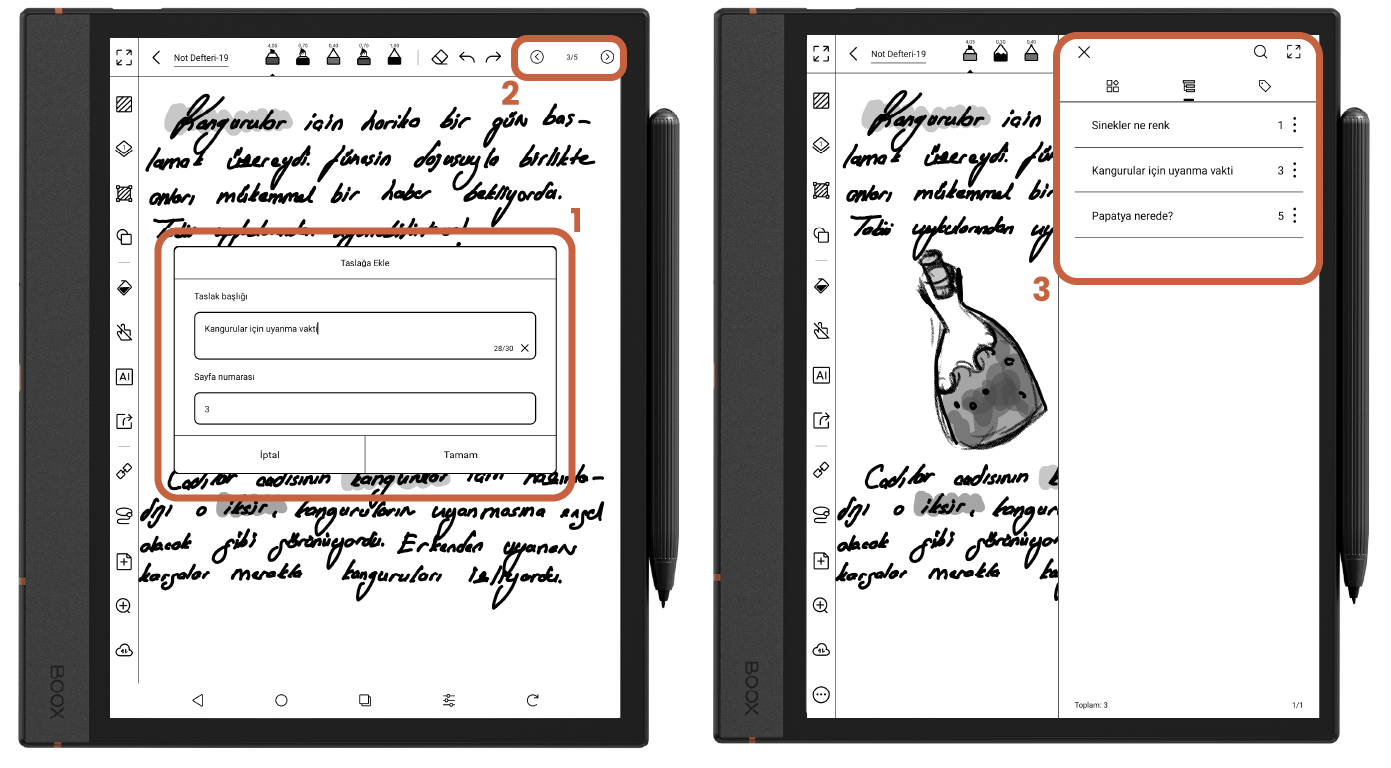 Not Defteri-19
4,05
0,70
0,40
0,70
1,00
3/5
2
Kangurular için harika bir gün baş-
lamak üzereydi. Güneşin doğuşuyla birlikte
onları mükemmel bir haber bekliyordu.
1
Taslağa Ekle
Taslak başlığı
Kangurular için uyanma vakti
28/30
Sayfa numarası
3
İptal
Tamam
Cadılar cadısının kangurular için
o iksir, kanguruların uyanmasına engel
olacak gibi görünüyordu. Erkenden uyanan
kargalar merakla kanguruları izliyordu.
AI
BOOX
Not Defteri-19
4,05
0,30
0,40
Kangurular için
lamak üzereydi.
onları mükemmel bir
Tabii uykularından uy
Cadılar cadısının
o iksir, kangur
olacak gibi görünüyor
kargalar merakla ka
AI
BOOX
Sinekler ne renk 1
Kangurular için uyanma vakti 3
Papatya nerede? 5
3
Toplam: 3
1/1